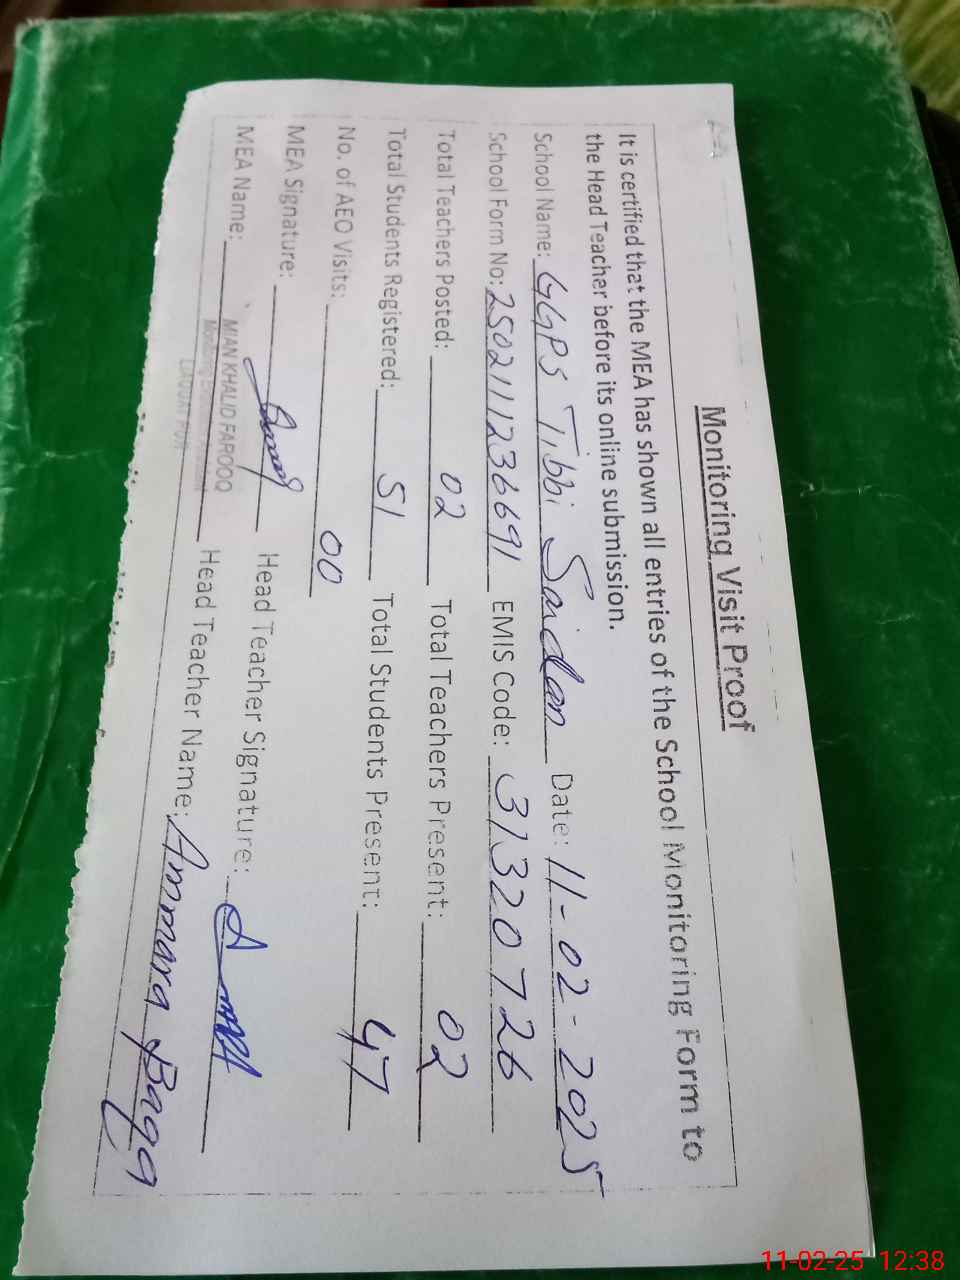 Monitoring Visit Proof
It is certified that the MEA has shown all entries of the School Monitoring Form to
the Head Teacher before its online submission.
School Name: GGPS Tibbi Saidan Date: 11-02-2025
School Form No: 250211123 6691 EMIS Code: 31320726
Total Teachers Posted: 02 Total Teachers Present: 02
Total Students Registered: 51 Total Students Present: 47
No. of AEO Visits: 00
MEA Signature: Head Teacher Signature:
MEA Name: MIAN KHALID FAROOQ Head Teacher Name: Ammara Baqa
LIAQUAT PUR
11-02-25 12:38